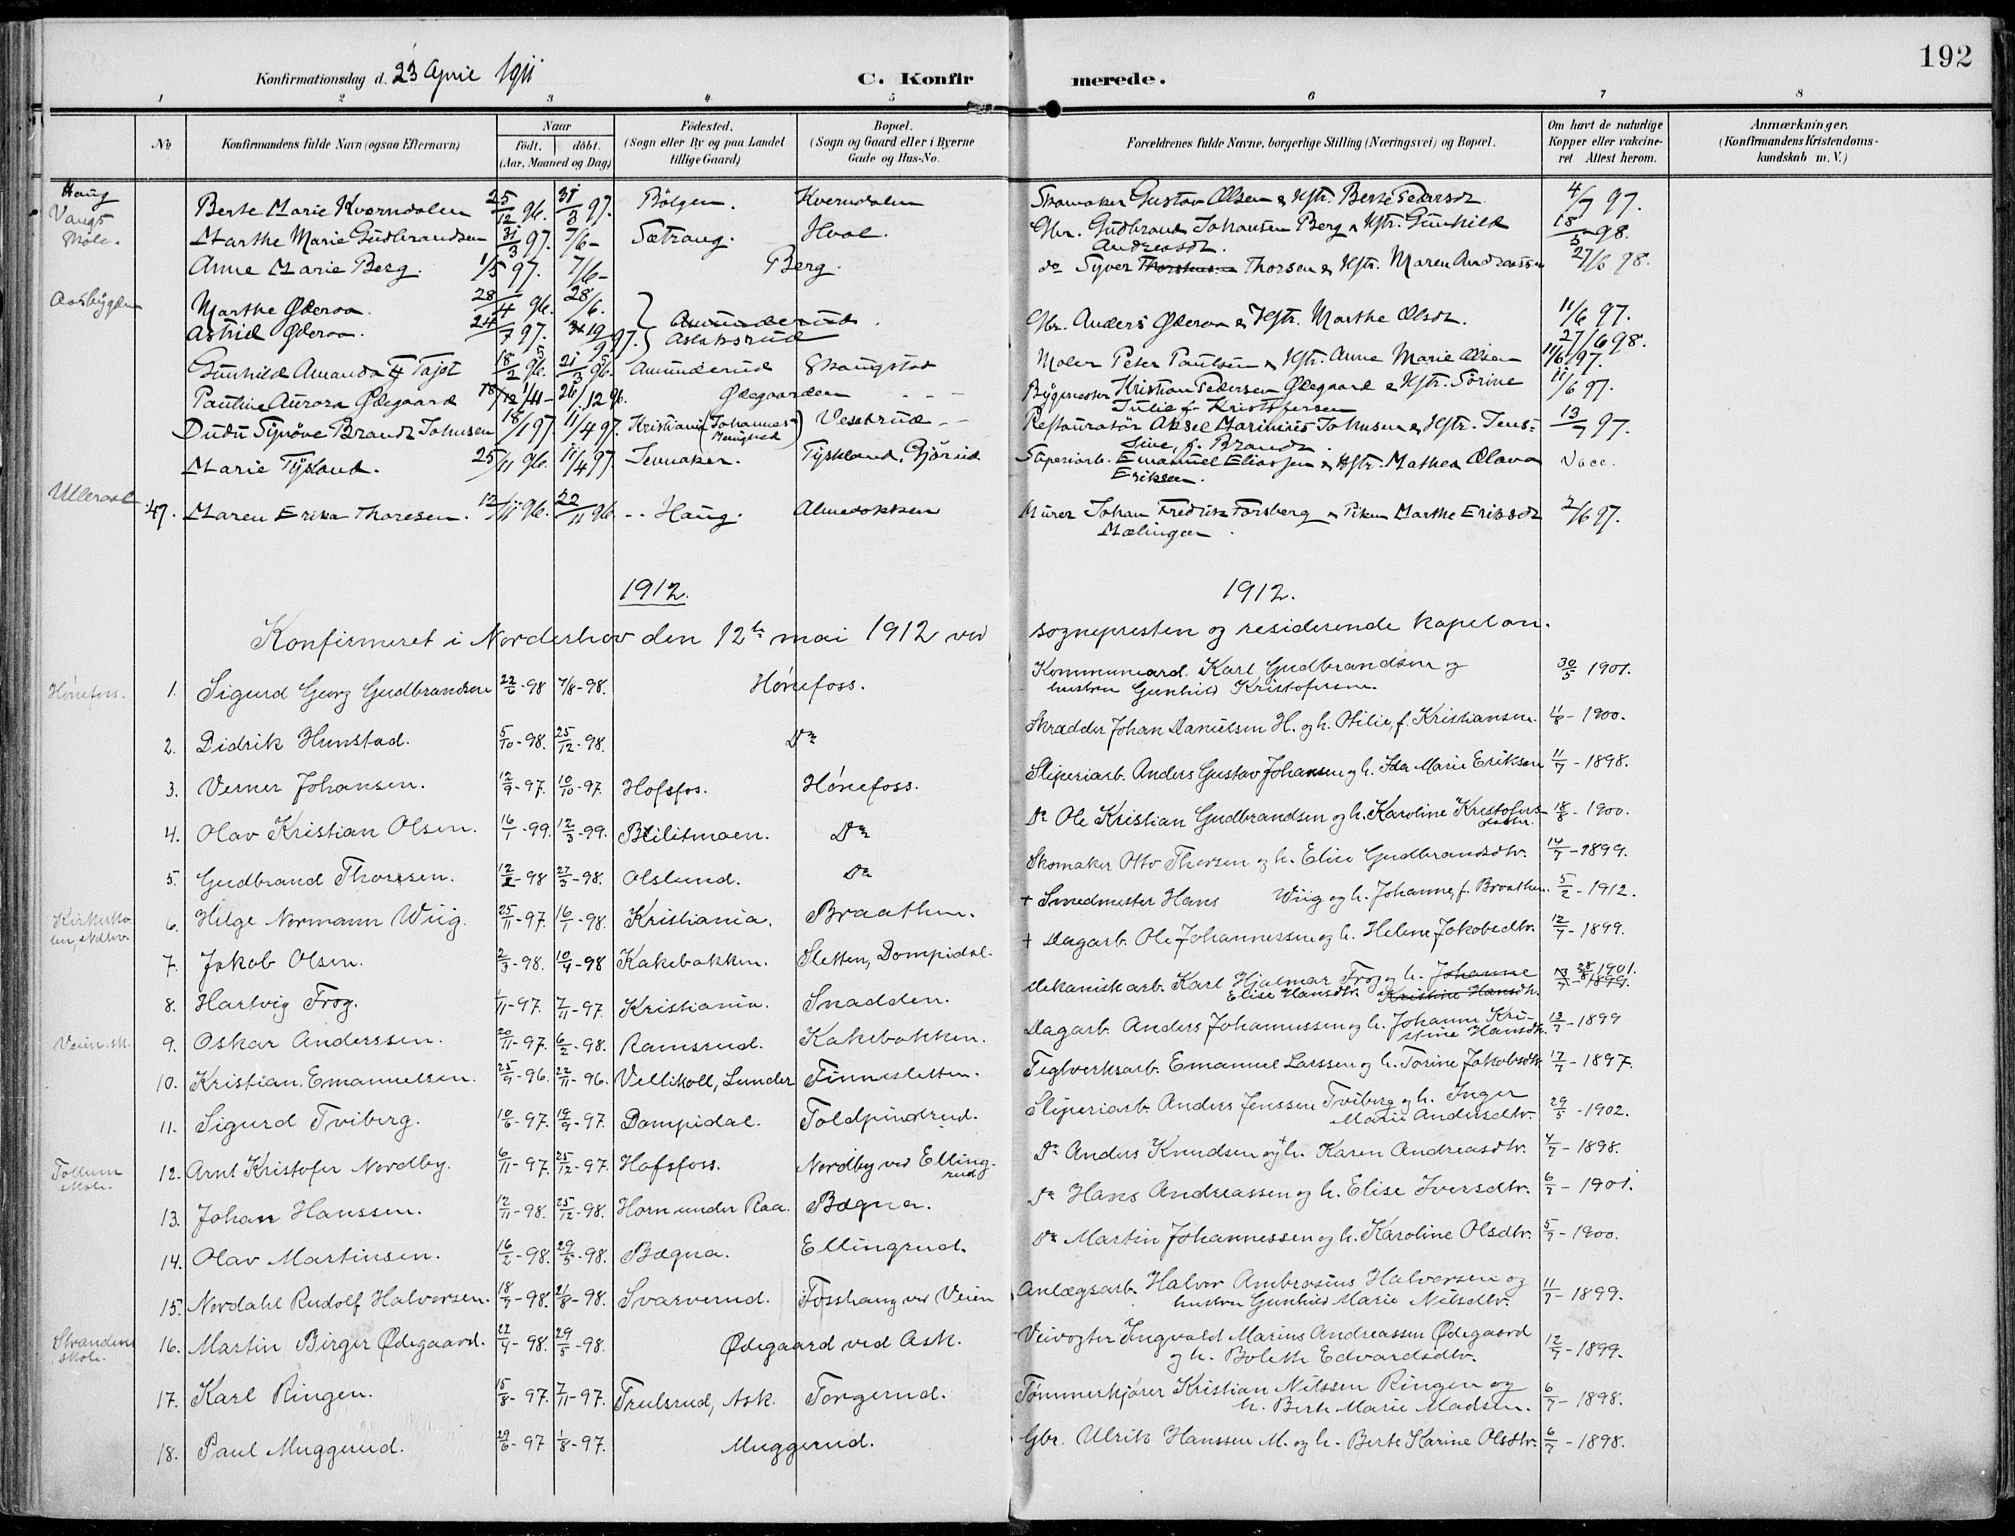 192
Konfirmationsdag d. 23 April 1911 C. Konfirmerede.
1 2 3 4 5 6 7 8
No Konfirmandens fulde Navn (ogsaa Efternavn) Naar födt. döbt. (Aar, Maaned og Dag) Födested. (Sogn eller By og paa Landet tillige Gaard) Bopæl. (Sogn og Gaard eller i Byerne Gade og Hus-No. Forældrenes fulde Navne, borgerlige Stilling (Næringsvei) og Bopæl. Om havt de naturlige Kopper eller vakcineret Attest herom. Anmærkninger. (Konfirmandens Kristendomskundskab m. V.)
Haug
Berte Marie Kverndalen 25/12 96. 31/3 97. Bölgen. Kverndalen Skomaker Gustav Olsen & Hstr. Berte Pedersdt. 4/7 97.
Vangs skole.
Marthe Marie Gudbrandsen 31/3 97. 7/6 – Sætrang. Hval. Gbr. Gudbrand Johansen Berg & Hstr. Gunhild 18/5 98.
Andreasdt.
Anne Marie Berg. 1/5 97. 7/6 – Berg. do Syver Thorsen & Hstr. Maren Andreassen 27/6 98.
Aasbygden
Marthe Öderaa. 28/4 96. 28/6. Amunderud. Gbr. Anders Öderaa & Hstr. Marthe Olsdt. 11/6 97.
Astrid Öderaa. 24/7 97. 19/9 97. Aslaksrud 27/6 98.
Gunhild Amanda Tajet 18/2 96. 21/3 96. Amunderud Skaugstad Maler Peter Paulsen & Hstr. Anne Marie Olsen 11/6 97.
Pauline Aurora Ödegaard 26/12 96. Ödegaarden Bygmester Kristian Pedersen Ödegaard & Hstr. Sörine 11/6 97.
Julie f. Kristofersen
Dudu Synöve Brandt Johnsen 18/1 97. 11/4 97. Kristiania (Johannes Menighed) Vesterud – – Restauratör Aksel Marinius Johnsen & Hstr. Jens- 13/7 97.
sine, f. Brandt.
Marie Tysland. 25/11 96. 11/4 97. Jevnaker. Tyskland, Gjörud Sliperiarb. Emanuel Eliassen & Hstr. Mathea Olava Vacc.
Eriksen.
Ulleraal
47. Maren Erika Thoresen. 12/11 96. 22/11 96. – – Haug. Almebakken Murer Johan Fredrik Forsberg & Piken Marthe Eriksdt 2/6 97.
Mælingen.
1912. 1912.
Konfirmeret i Norderhov den 12te mai 1912 ved sognepresten og residerende kapelan.
Hönefoss. 1. Sigurd Georg Gudbrandsen 22/6 - 98 7/8 - 98. Hönefoss. Kommuneard. Karl Gudbrandsen og 30/5 1901.
hustru Gunhild Kristofersen.
2. Didrik Hunstad. 5/10 - 98. 25/12 - 98. Do Skrædder Johan Danielsen H. og h. Otilie, f. Kristiansen. 11/8 - 1900.
3. Verner Johansen. 12/9 - 97. 10/10 - 97. Hofsfos. Hönefoss. Sliperiarb. Anders Gustav Johansen og h. Ida Marie Eriksen 11/7 - 1898.
4. Olav Kristian Olsen. 16/1 - 99. 12/3 - 99. Blilitmoen. Do Do Ole Kristian Gudbrandsen og h. Karoline Kristofers- 18/8 - 1900.
datter.
5. Gudbrand Thoresen. 12/2 - 98 27/3 - 98. Olslund. Do Skomaker Otto Thorsen og h. Elise Gudbrandsdtr. 14/7 - 1899.
Kirkesko- len, Ndhv. 6. Helge Normann Wiig. 25/11 - 97. 16/1 - 98. Kristiania. Braathen. + Smedmester Hans Wiig og h. Johanne, f. Braathen. 5/2 - 1912.
7. Jakob Olsen. 2/3 - 98. 10/4 - 98 Kakebakken. Sletten, Dompidal. + Dagarb. Ole Johannessen og h. Helene Jakobsdtr. 12/7 - 1899.
8. Hartvig Frog. 1/11 - 97. 7/11 - 97. Kristiania. Snadden. Mekaniskarb. Karl Hjalmar Frog og h. Johanne 28/8 1901.
Elise Hansdtr. Kristine Hansdtr. 1899.
Veien sk. 9. Oskar Anderssen. 20/11 - 97. 6/2 - 98. Ramsrud. Kakebakken. Dagarb. Anders Johannessen og h. Johanne Kri- 13/7 - 1899
stine Hansdtr.
10. Kristian Emanuelsen. 25/9 - 96. 22/11 - 96. Vellikoll, Lunder Finnesletten. Teglverksarb. Emanuel Larssen og h. Torine Jakobsdtr. 17/7 - 1897.
11. Sigurd Tviberg. 10/6 - 97. 19/9 - 97. Dompidal. Toldpinsrud. Sliperiarb. Anders Jenssen Tviberg og h. Inger 29/5 - 1902.
Marie Andersdtr.
Tollum skole. 12. Arnt Kristofer Nordby. 6/11 - 97. 25/12 - 97. Hofsfoss. Nordby ved Elling- Do Anders Knudsen og h. Karen Andreasdtr. 4/7 - 1898.
rud
13. Johan Hanssen. 12/11 - 98. 25/12 - 98. Horn under Raa. Bægna. Do Hans Andreassen og h. Elise Iversdtr. 6/7 - 1901.
14. Olav Martinsen. 16/2 - 98. 29/5 - 98. Bægna. Ellingrud. Do Martin Johannessen og h. Karoline Olsdtr. 5/7 - 1900.
15. Nordahl Rudolf Halvorsen. 18/7 - 98. 21/8 - 98. Svarverud. Fosshaug ved Veien Anlægsarb. Halvor Ambrosius Halvorsen og 11/7 - 1899.
hustru Gunhild Marie Nilsdtr.
Strandens skole. 16. Martin Birger Ödegaard. 22/4 - 98. 29/5 - 98. Ödegaard ved Ask. Veivogter Ingvald Marius Andreassen Ödegaard 12/7 - 1899.
og h. Bolette Edvardsdtr.
17. Karl Ringen. 15/8 - 97. 7/11 - 97. Trulsrud, Ask. Tangerud. Tömmerkjörer Kristian Nilssen Ringen og 6/7 - 1898.
h. Berte Marie Madsen.
18. Paul Muggerud. 29/6 - 97 1/8 - 97. Muggerud. Gbr. Ulrik Hanssen M. og h. Berte Karine Olsdtr. 6/7 - 1898.